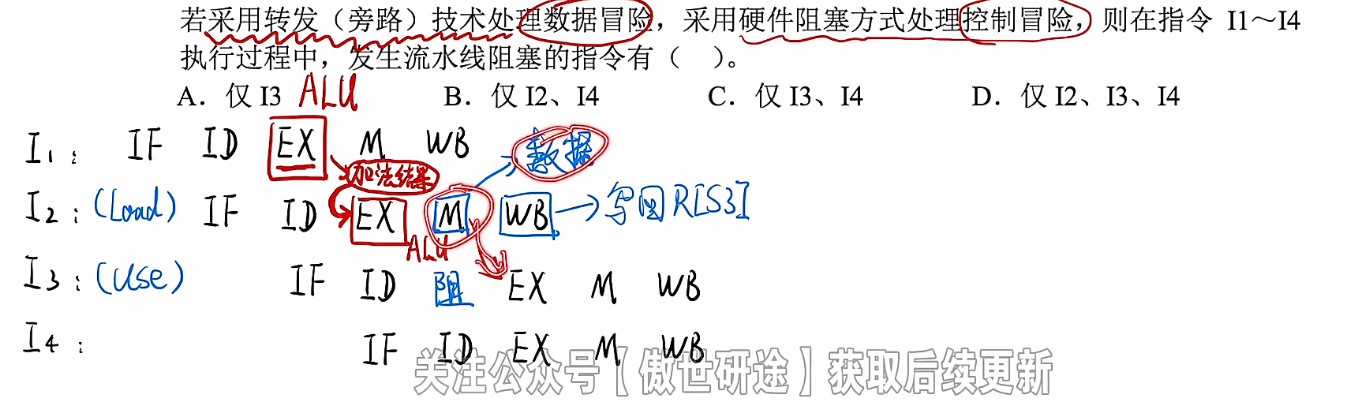 若采用转发（旁路）技术处理数据冒险，采用硬件阻塞方式处理控制冒险，则在指令 I1～I4
执行过程中，发生流水线阻塞的指令有（ ）。
A．仅 I3 ALU B．仅 I2、I4 C．仅 I3、I4 D．仅 I2、I3、I4
I1： IF ID EX M WB 数据
加法结果
I2：(Load) IF ID EX M WB → 写回R[S3]
ALU
I3：(Use) IF ID 阻 EX M WB
I4： IF ID EX M WB
关注公众号【傲世研途】获取后续更新